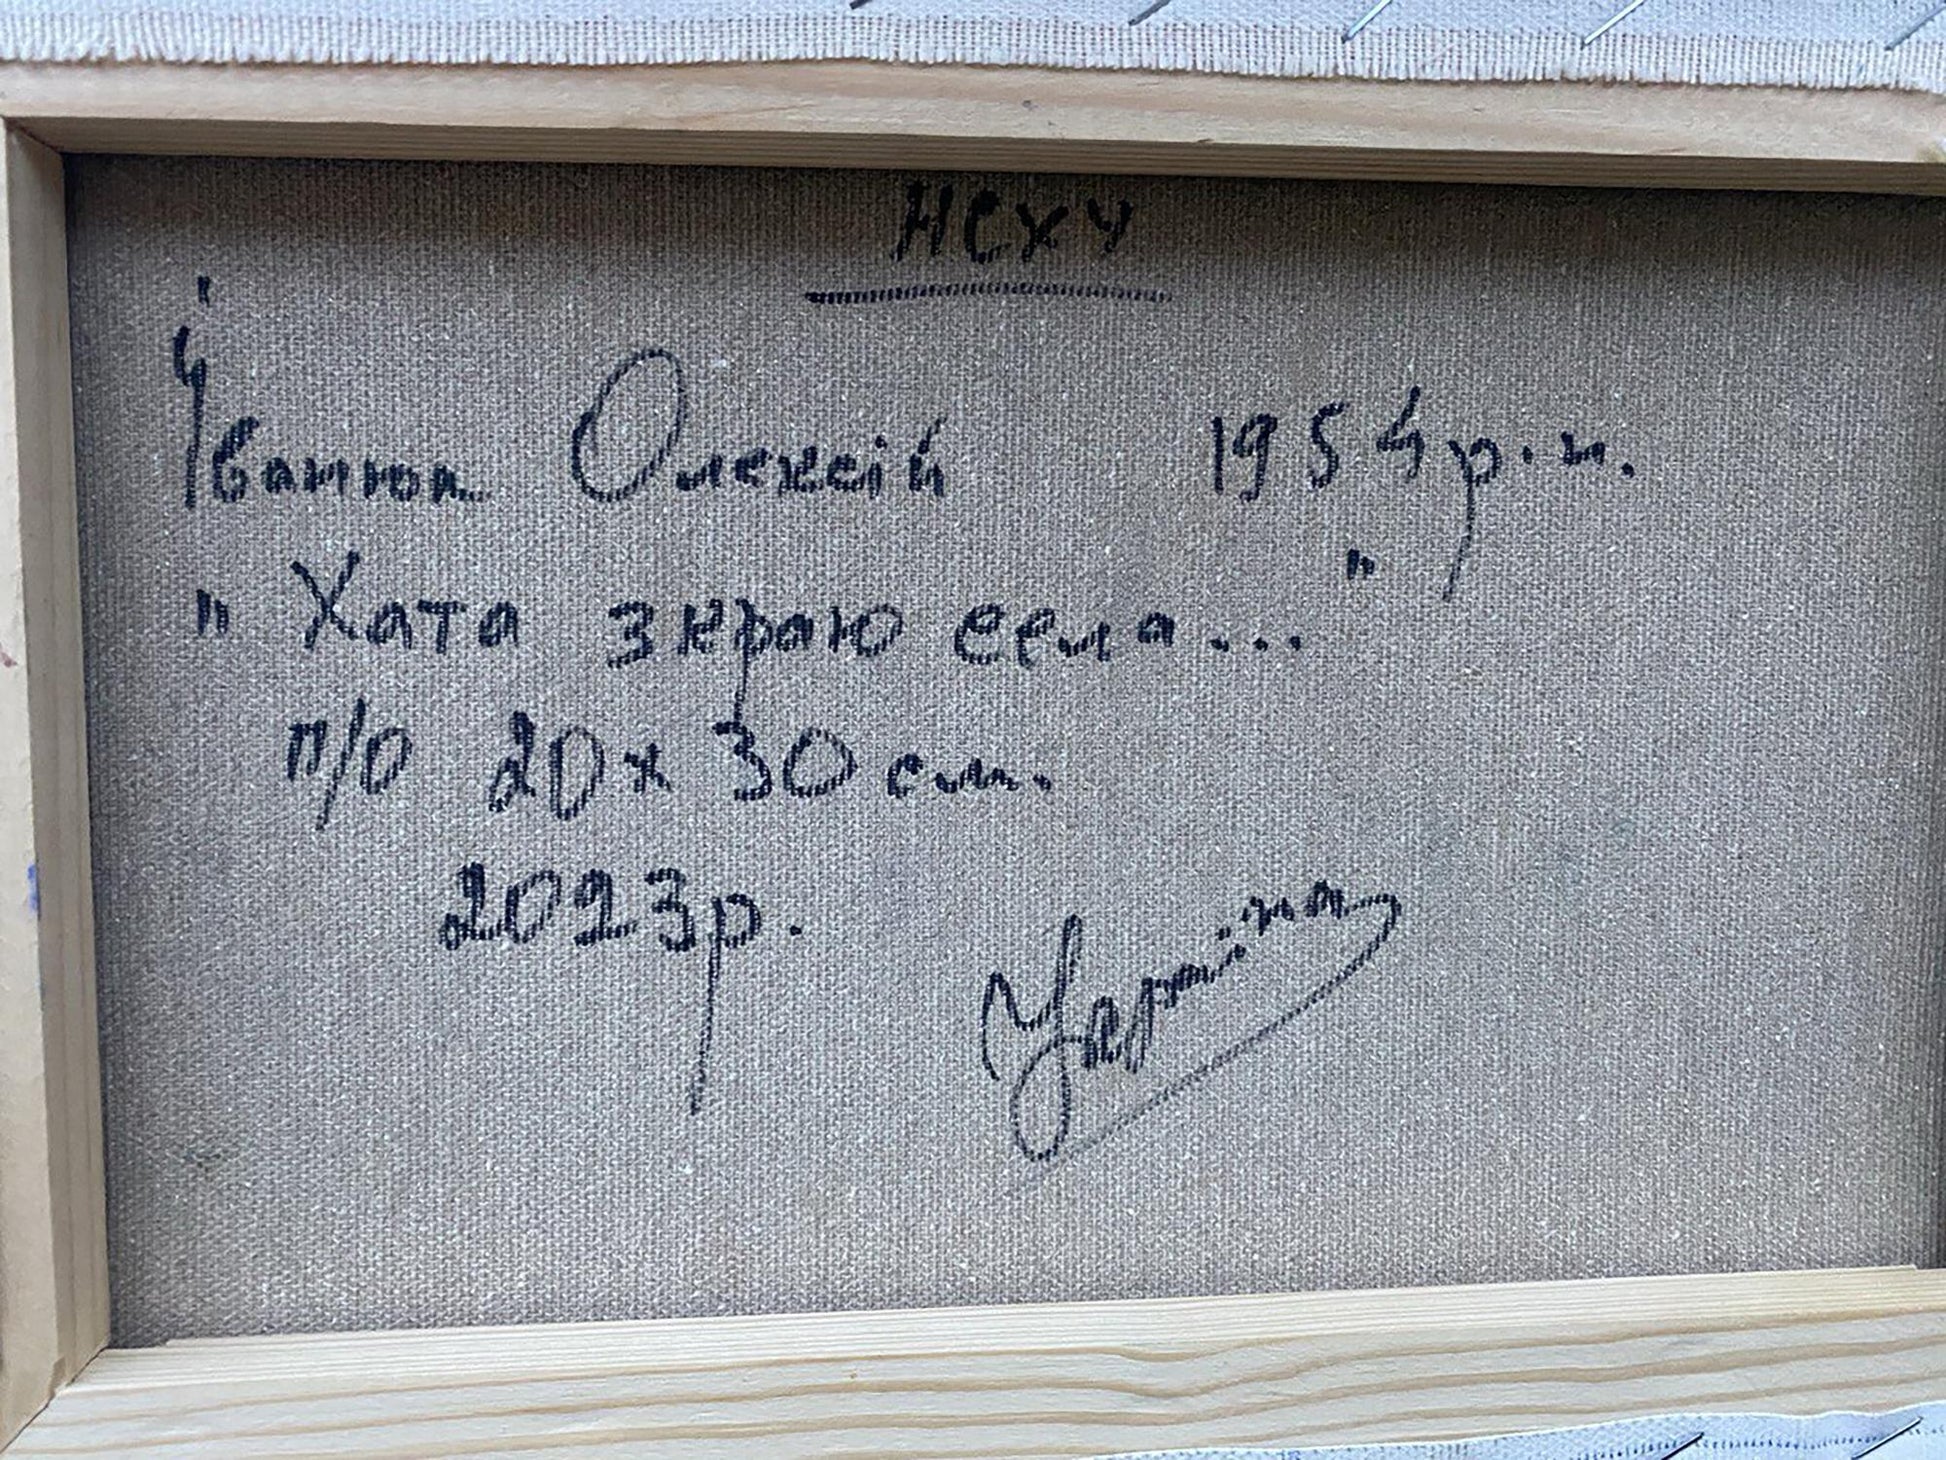 НСХУ
Іванюк Олексій 1954 р.н.
"Хата з краю села..."
п/о 20х30 см.
2023р.